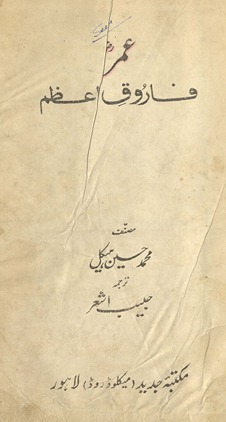 عمرؓ
فاروقِ اعظم
مصنّف
محمد حسین ہیکل
ترجمہ
حبیب اشعر
مکتبۂ جدید (میکلوڈ روڈ) لاہور